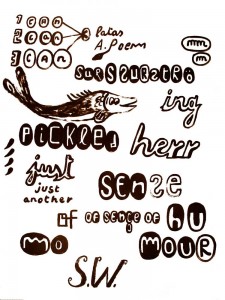 1 can
2 can
3 can
Patas
A. Poem
mm
m
ing
PICKLED
herr
just
just
another
SENSE
of OF SENSE OF HU
MO MOUR
S.W.